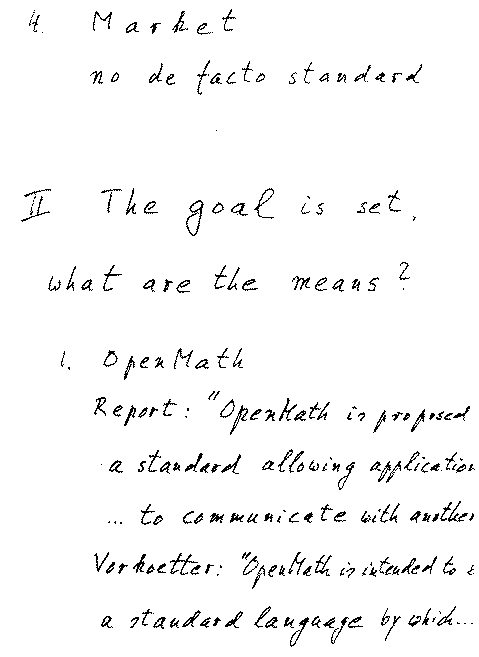 4. Market
no de facto standard
II The goal is set,
what are the means?
1. OpenMath
Report: "OpenMath is proposed
a standard allowing application
... to communicate with another
Vorkoetter: "OpenMath is intended to
a standard language by which...